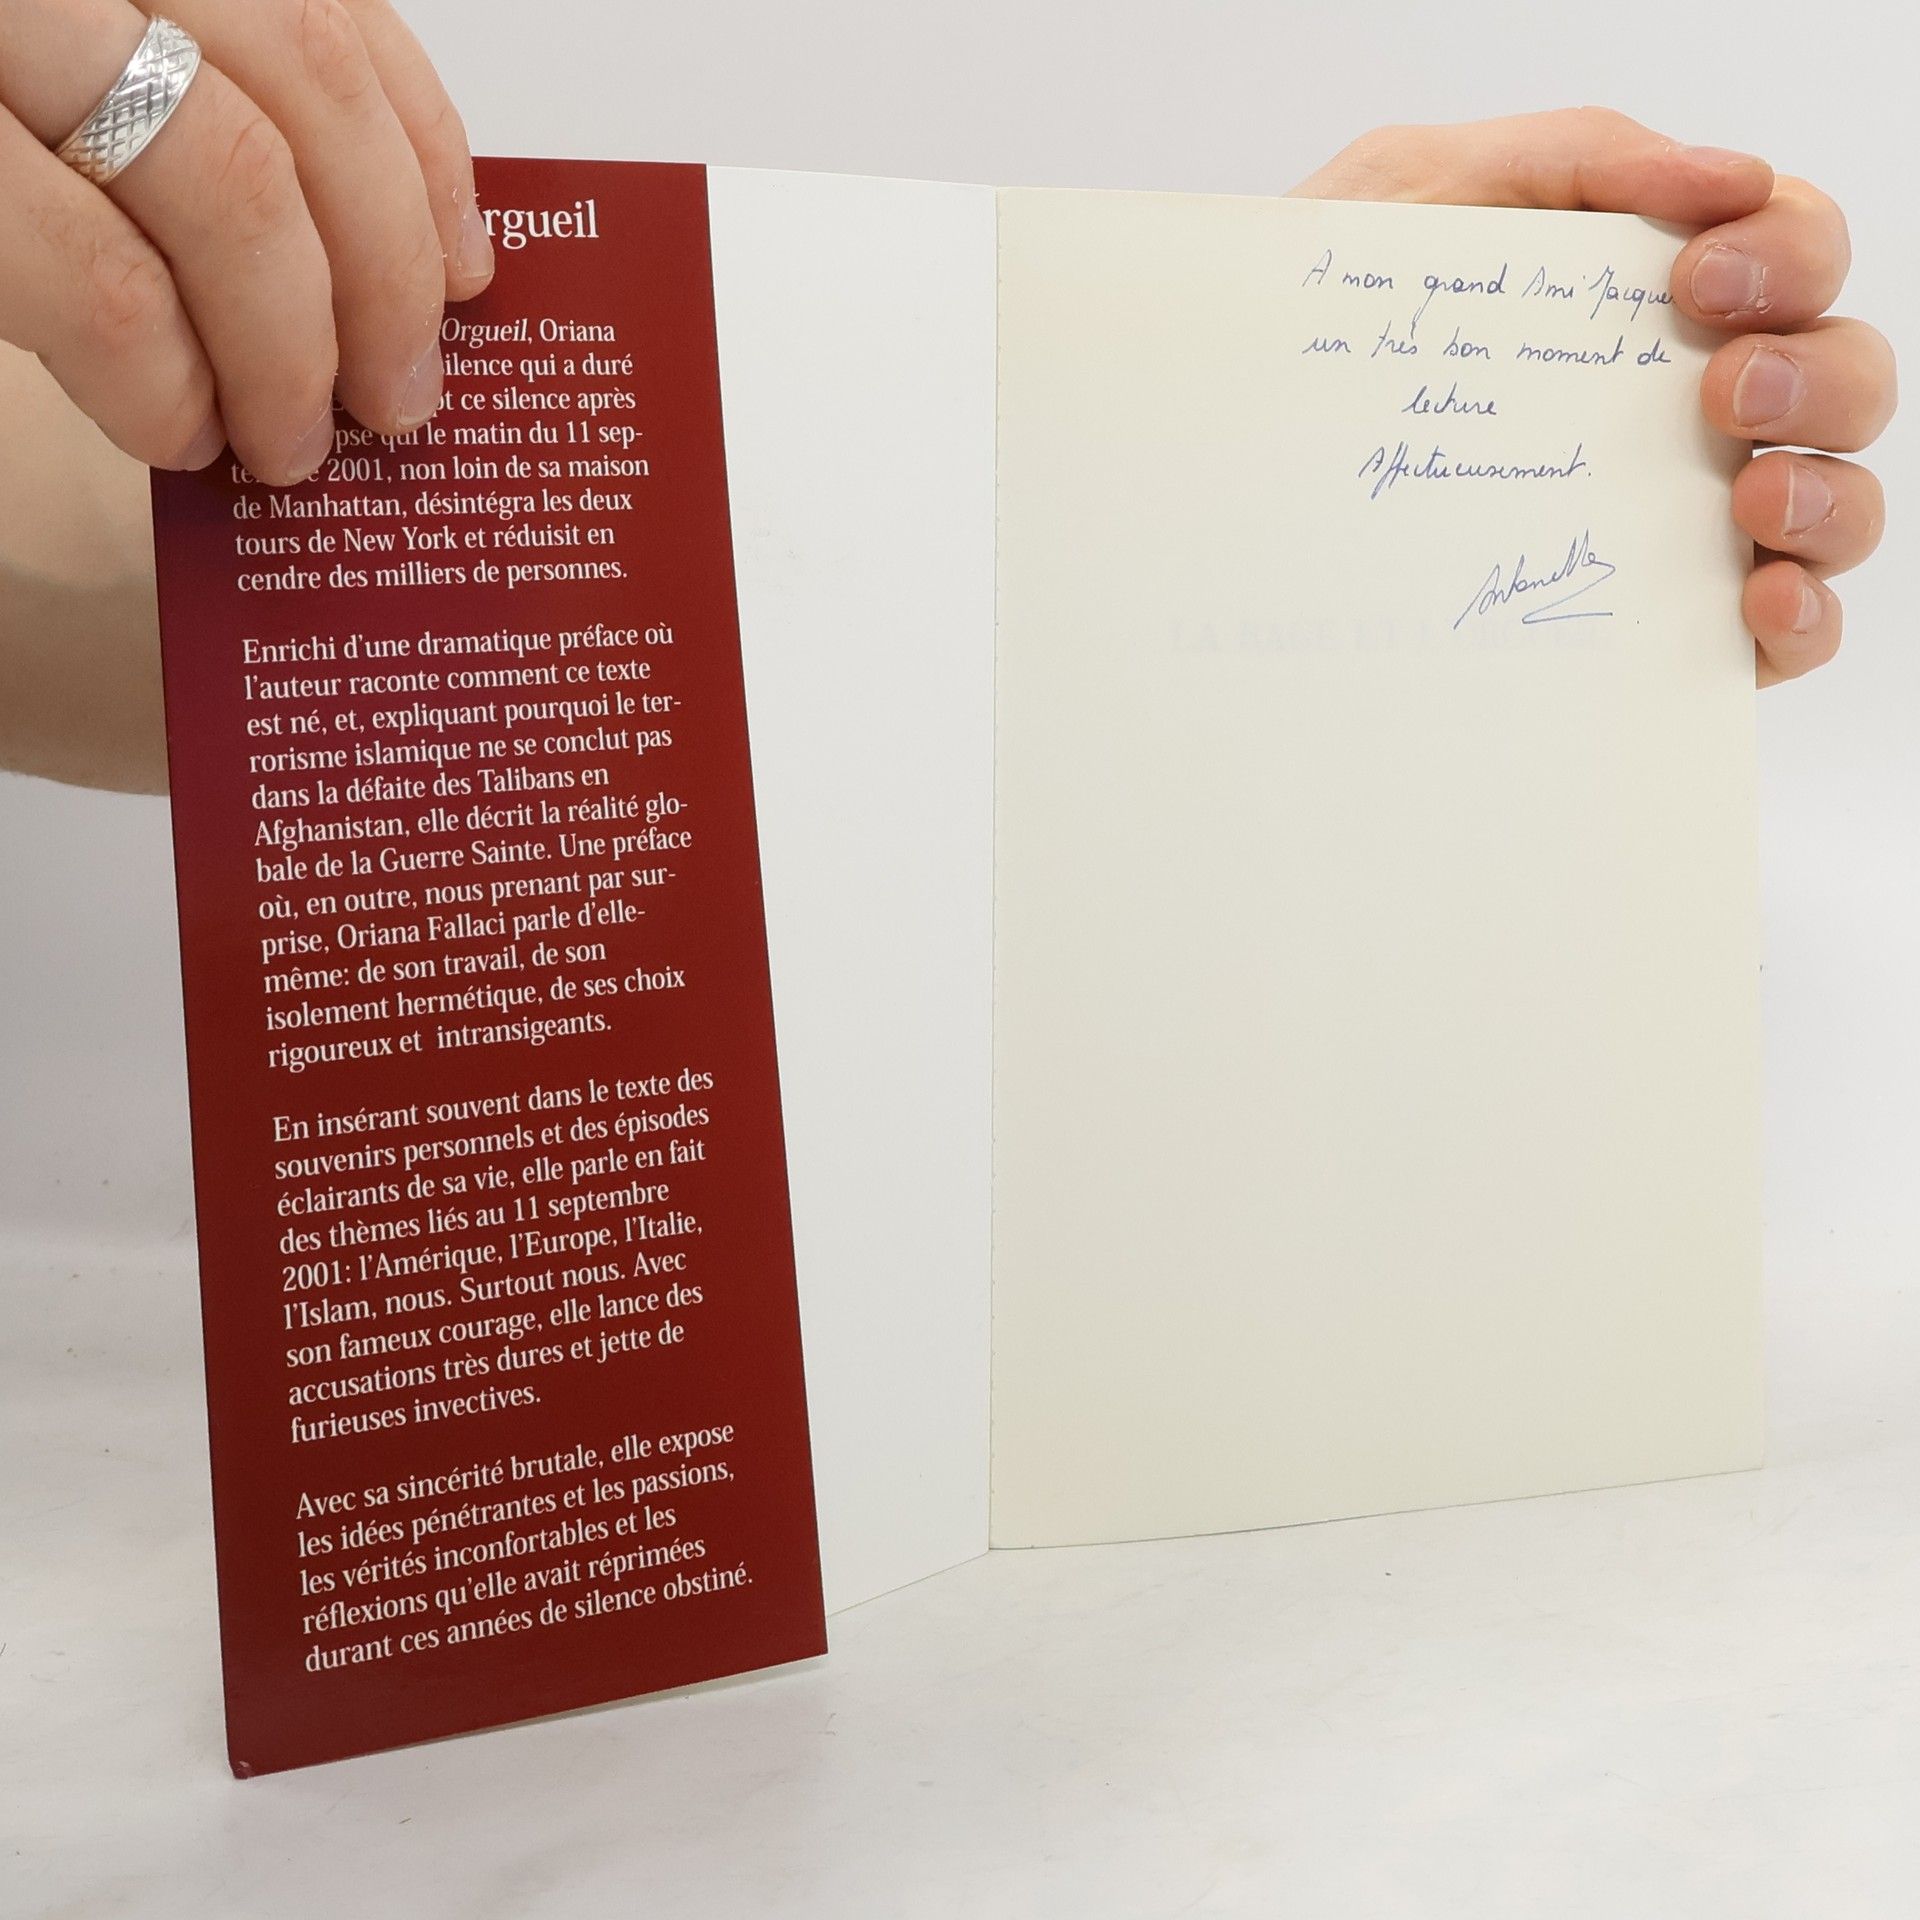 rgueil
Orgueil, Oriana
ilence qui a duré
pt ce silence après
pse qui le matin du 11 sep-
te e 2001, non loin de sa maison
de Manhattan, désintégra les deux
tours de New York et réduisit en
cendre des milliers de personnes.
Enrichi d'une dramatique préface où
l'auteur raconte comment ce texte
est né, et, expliquant pourquoi le ter-
rorisme islamique ne se conclut pas
dans la défaite des Talibans en
Afghanistan, elle décrit la réalité glo-
bale de la Guerre Sainte. Une préface
où, en outre, nous prenant par sur-
prise, Oriana Fallaci parle d'elle-
même: de son travail, de son
isolement hermétique, de ses choix
rigoureux et intransigeants.
En insérant souvent dans le texte des
souvenirs personnels et des épisodes
éclairants de sa vie, elle parle en fait
des thèmes liés au 11 septembre
2001: l'Amérique, l'Europe, l'Italie,
l'Islam, nous. Surtout nous. Avec
son fameux courage, elle lance des
accusations très dures et jette de
furieuses invectives.
Avec sa sincérité brutale, elle expose
les idées pénétrantes et les passions,
les vérités inconfortables et les
réflexions qu'elle avait réprimées
durant ces années de silence obstiné.
A mon grand Ami Jacque
un très bon moment de
lecture
Affectueusement.
Antonella